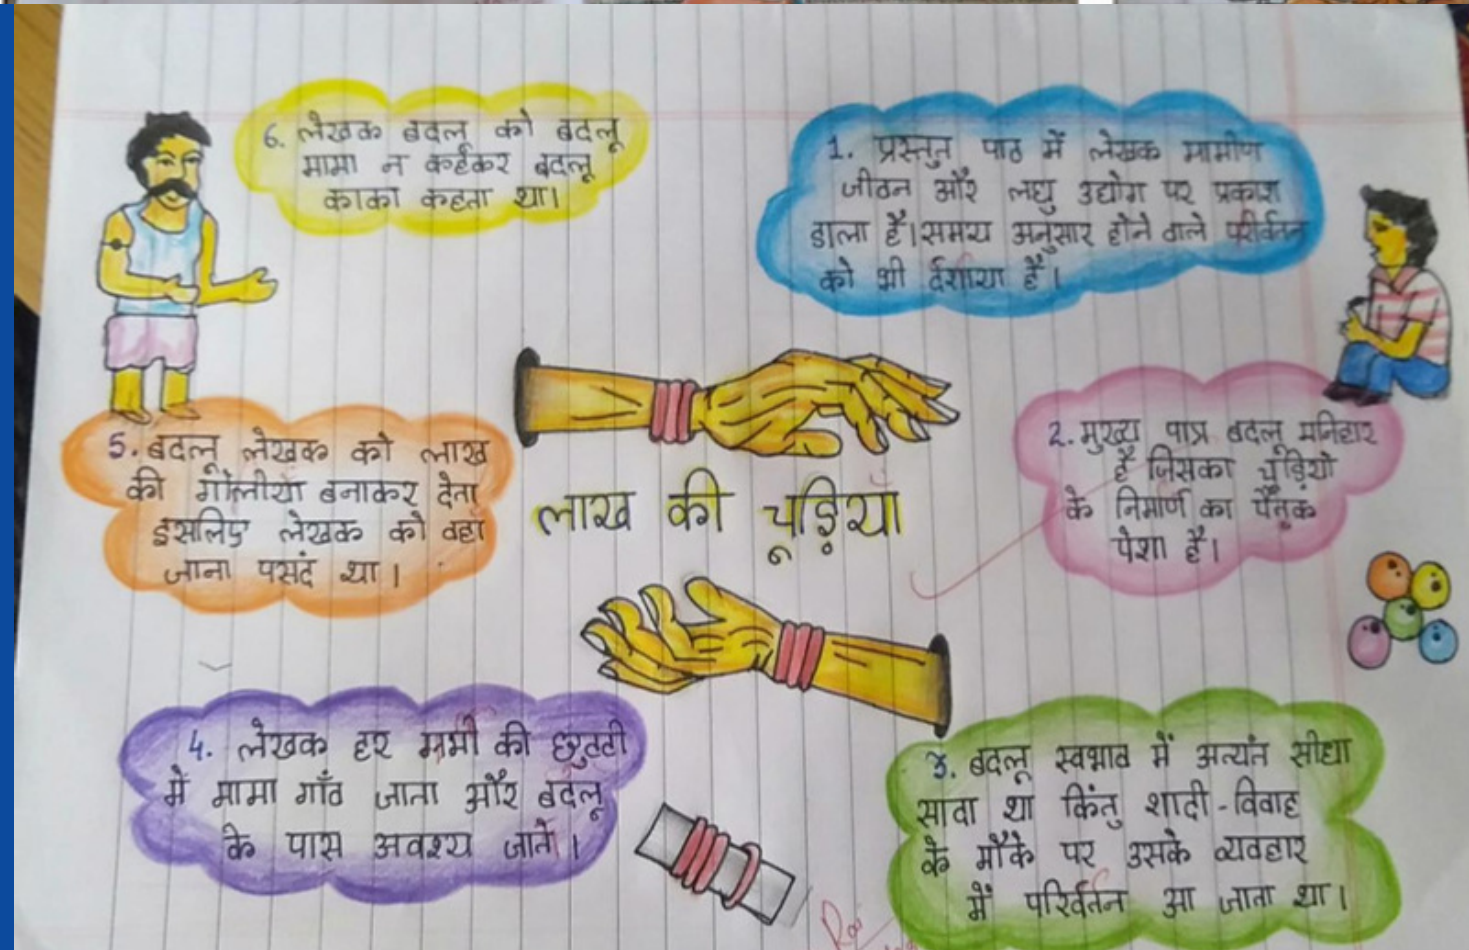 1. प्रस्तुत पाठ में लेखक ग्रामीण
जीवन और लघु उद्योग पर प्रकाश
डाला है। समय अनुसार होने वाले परिर्वतन
को भी र्दशाया हैं।
2. मुख्य पात्र बदलू मनिहार
है जिसका चूड़ियो
के निमार्ण का पैतृकं
पेशा है।
3. बदलू स्वभाव में अत्यंत सीधा
सादा था किंतु शादी-विवाह
के मौके पर उसके व्यवहार
में परिर्वतन आ जाता था।
4. लेखक हर गर्मी की छुटटी
में मामा गाँव जाता और बदलू
के पास अवश्य जाते।
5. बदलू लेखक को लाख
की गोलीयाँ बनाकर देता
इसलिए लेखक को वहाँ
जाना पसंद था।
6. लेखक बदलू को बदलू
मामा न कहकर बदलू
काका कहता था।
लाख की चूड़ियाँ